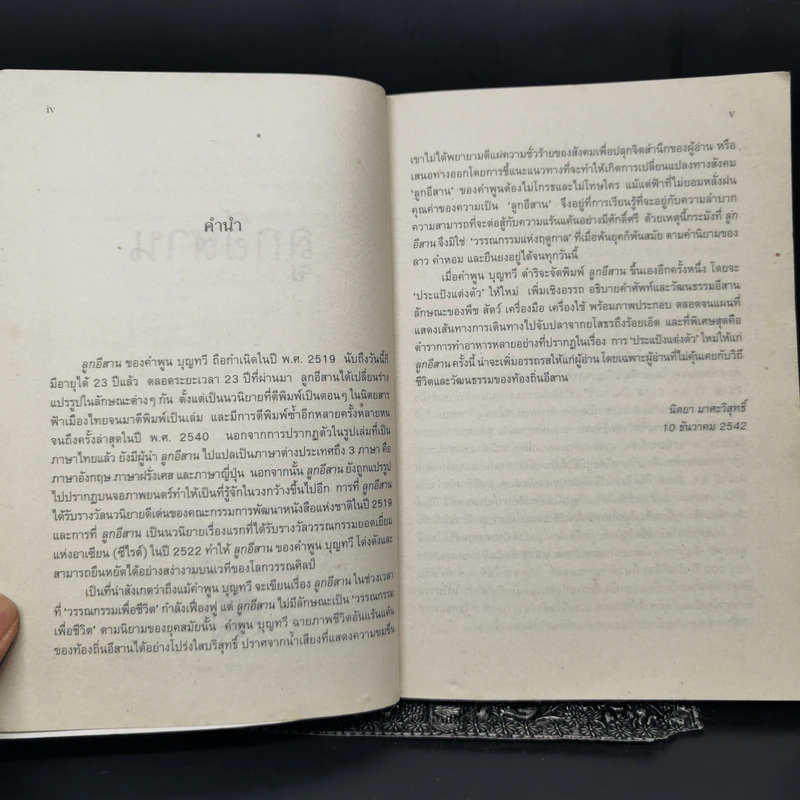 iv
คำนำ
ลูกอีสาน ของคำพูน บุญทวี ถือกำเนิดในปี พ.ศ. 2519 นับถึงวันนี้ก็
มีอายุได้ 23 ปีแล้ว ตลอดระยะเวลา 23 ปีที่ผ่านมา ลูกอีสานได้เปลี่ยนร่าง
แปรรูปในลักษณะต่างๆ กัน ตั้งแต่เป็นนวนิยายที่ตีพิมพ์เป็นตอนๆ ในนิตยสาร
ฟ้าเมืองไทยจนมาตีพิมพ์เป็นเล่ม และมีการตีพิมพ์ซ้ำอีกหลายครั้งหลายหน
จนถึงครั้งล่าสุดในปี พ.ศ. 2540 นอกจากการปรากฏตัวในรูปเล่มที่เป็น
ภาษาไทยแล้ว ยังมีผู้นำ ลูกอีสาน ไปแปลเป็นภาษาต่างประเทศถึง 3 ภาษา คือ
ภาษาอังกฤษ ภาษาฝรั่งเศส และภาษาญี่ปุ่น นอกจากนั้น ลูกอีสาน ยังถูกแปรรูป
ไปปรากฏบนจอภาพยนตร์ทำให้เป็นที่รู้จักในวงกว้างขึ้นไปอีก การที่ ลูกอีสาน
ได้รับรางวัลนวนิยายดีเด่นของคณะกรรมการพัฒนาหนังสือแห่งชาติในปี 2519
และการที่ ลูกอีสาน เป็นนวนิยายเรื่องแรกที่ได้รับรางวัลวรรณกรรมยอดเยี่ยม
แห่งอาเซียน (ซีไรต์) ในปี 2522 ทำให้ ลูกอีสาน ของคำพูน บุญทวี โด่งดังและ
สามารถยืนหยัดได้อย่างสง่างามบนเวทีของโลกวรรณศิลป์
เป็นที่น่าสังเกตว่าถึงแม้คำพูน บุญทวี จะเขียนเรื่อง ลูกอีสาน ในช่วงเวลา
ที่ 'วรรณกรรมเพื่อชีวิต' กำลังเฟื่องฟู แต่ ลูกอีสาน ไม่มีลักษณะเป็น 'วรรณกรรม
เพื่อชีวิต' ตามนิยามของยุคสมัยนั้น คำพูน บุญทวี ฉายภาพชีวิตอันแร้นแค้น
ของท้องถิ่นอีสานได้อย่างโปร่งใสบริสุทธิ์ ปราศจากน้ำเสียงที่แสดงความขมขื่น
v
เขาไม่ได้พยายามตีแผ่ความชั่วร้ายของสังคมเพื่อปลุกจิตสำนึกของผู้อ่าน หรือ
เสนอทางออกโดยการชี้แนะแนวทางที่จะทำให้เกิดการเปลี่ยนแปลงทางสังคม
'ลูกอีสาน' ของคำพูนต้องไม่โกรธและไม่โทษใคร แม้แต่ฟ้าที่ไม่ยอมหลั่งฝน
คุณค่าของความเป็น 'ลูกอีสาน' จึงอยู่ที่การเรียนรู้ที่จะอยู่กับความลำบาก
ความสามารถที่จะต่อสู้กับความแร้นแค้นอย่างมีศักดิ์ศรี ด้วยเหตุนี้กระมังที่ ลูก
อีสาน จึงมิใช่ 'วรรณกรรมแห่งฤดูกาล' ที่เมื่อพ้นยุคก็พ้นสมัย ตามคำนิยามของ
ลาว คำหอม และยืนยงอยู่ได้จนทุกวันนี้
เมื่อคำพูน บุญทวี ดำริจะจัดพิมพ์ ลูกอีสาน ขึ้นเองอีกครั้งหนึ่ง โดยจะ
'ประแป้งแต่งตัว' ให้ใหม่ เพิ่มเชิงอรรถ อธิบายคำศัพท์และวัฒนธรรมอีสาน
ลักษณะของพืช สัตว์ เครื่องมือ เครื่องใช้ พร้อมภาพประกอบ ตลอดจนแผนที่
แสดงเส้นทางการเดินทางไปจับปลาจากยโสธรถึงร้อยเอ็ด และที่พิเศษสุดคือ
ตำราการทำอาหารหลายอย่างที่ปรากฏในเรื่อง การ 'ประแป้งแต่งตัว' ใหม่ให้แก่
ลูกอีสาน ครั้งนี้ น่าจะเพิ่มอรรถรสให้แก่ผู้อ่าน โดยเฉพาะผู้อ่านที่ไม่คุ้นเคยกับวิถี
ชีวิตและวัฒนธรรมของท้องถิ่นอีสาน
นิตยา มาศะวิสุทธิ์
10 ธันวาคม 2542